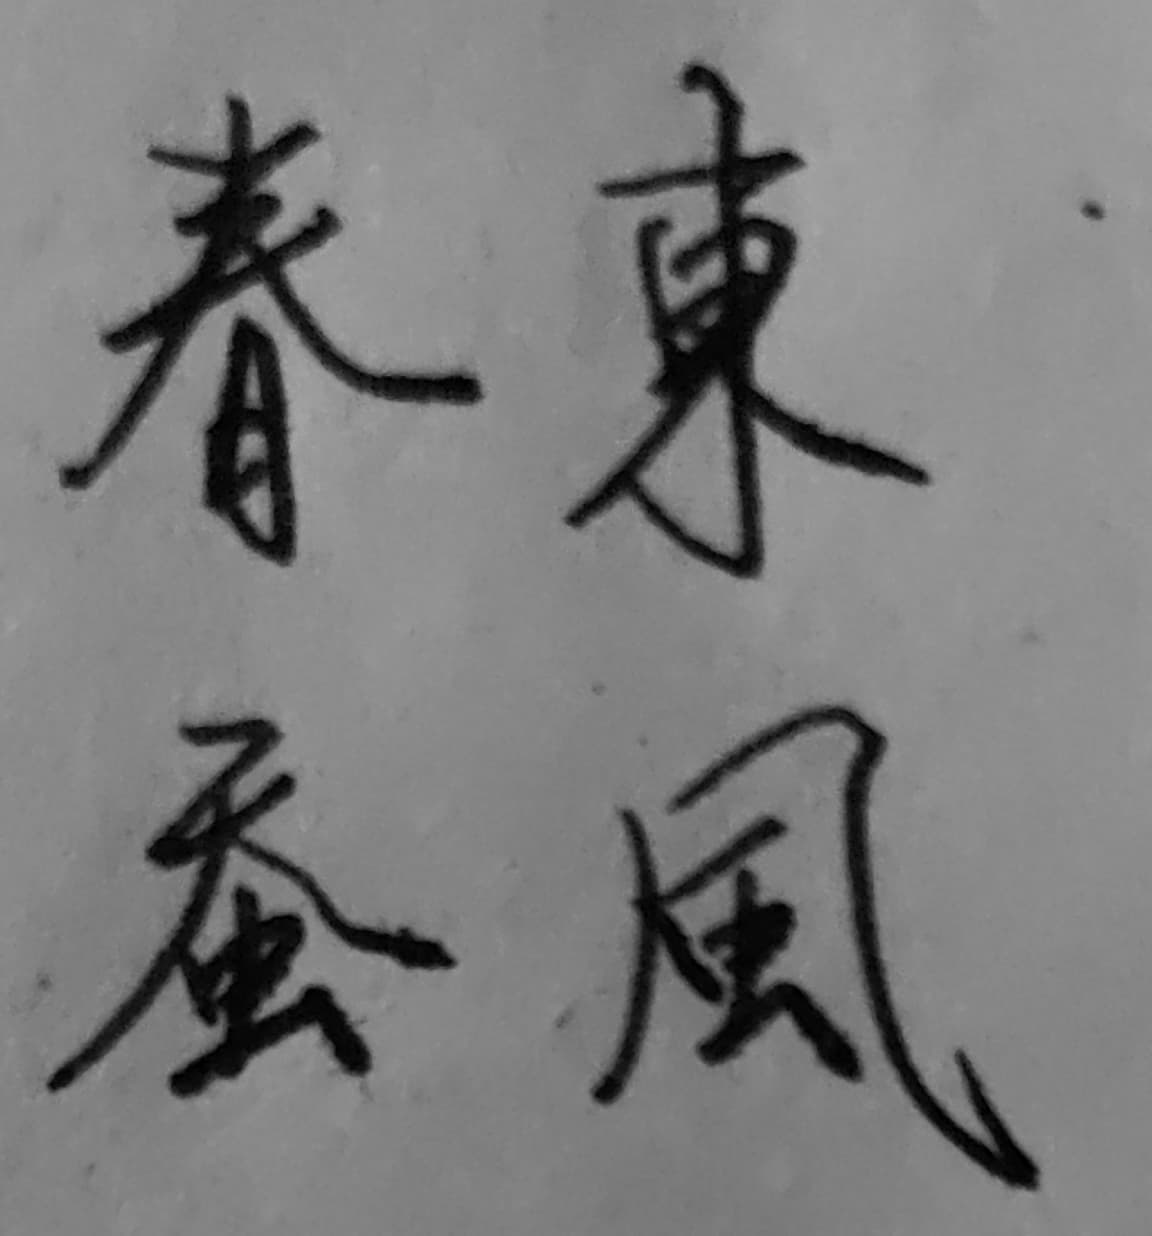 東風
春蚕